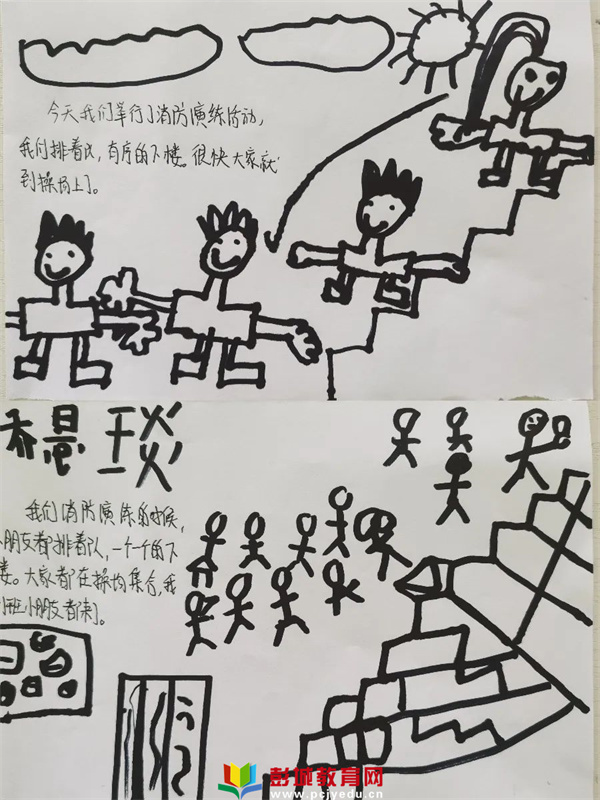 今天我们举行了消防演练活动，
我们排着队，有序的下楼。很快大家就
到操场上了。
思琰
我们消防演练的时候，
小朋友都排着队，一个个的下
楼。大家都在操场集合，我
们班小朋友都来了。
彭城教育网
www.pcjyedu.cn